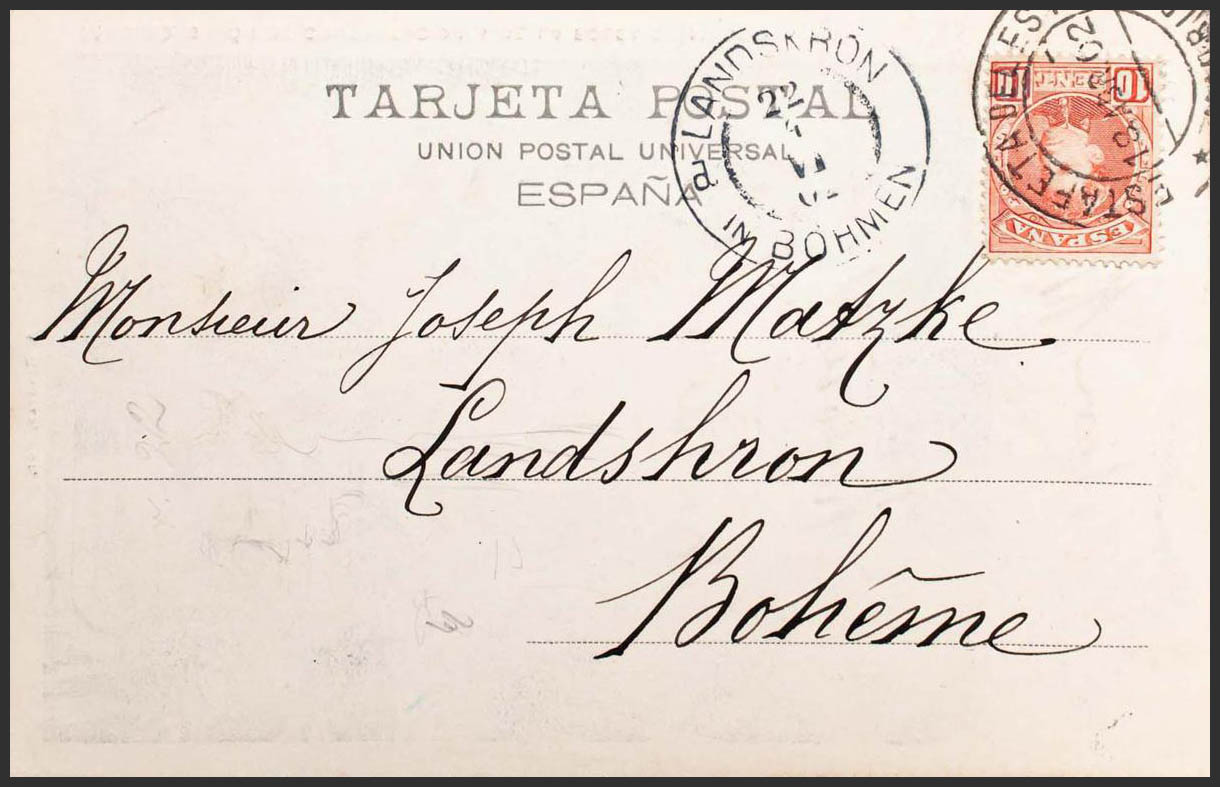 TARJETA POSTAL
UNION POSTAL UNIVERSAL
ESPAÑA
LANDSKRON
IN BÖHMEN
22
VI
ESTAFETA DEL ES
02
10
ESPAÑA
Monsieur Joseph Matzke.
Landskron
Bohême